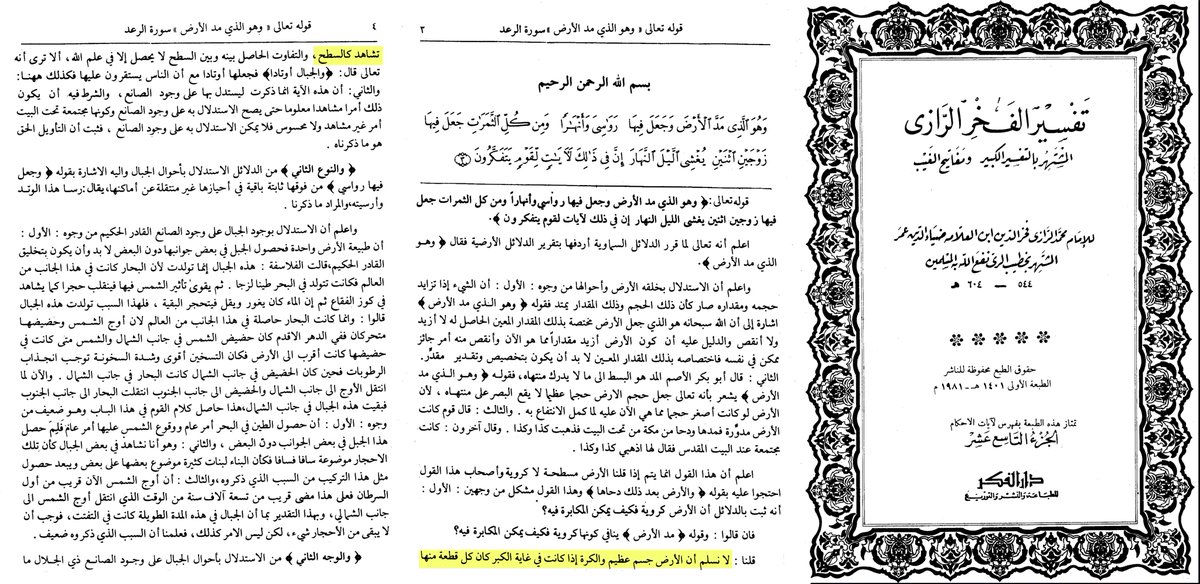 تفسير الفخر الرازي
المشتهر بالتفسير الكبير ومفاتيح الغيب
للإمام محمد الرازي فخر الدين ابن العلامة ضياء الدين عمر
المشتهر بخطيب الري نفع الله به المسلمين
٥٤٤ — ٦٠٤ هـ
حقوق الطبع محفوظة للناشر
الطبعة الأولى ١٤٠١ هـ - ١٩٨١ م
تمتاز هذه الطبعة بفهرس لآيات الأحكام
الجزء التاسع عشر
دار الفكر
للطباعة والنشر والتوزيع
قوله تعالى « وهو الذي مد الأرض » سورة الرعد ٣
بسم الله الرحمن الرحيم
وَهُوَ ٱلَّذِى مَدَّ ٱلْأَرْضَ وَجَعَلَ فِيهَا رَوَٰسِىَ وَأَنْهَٰرًا وَمِن كُلِّ ٱلثَّمَرَٰتِ جَعَلَ فِيهَا
زَوْجَيْنِ ٱثْنَيْنِ يُغْشِى ٱلَّيْلَ ٱلنَّهَارَ إِنَّ فِى ذَٰلِكَ لَآيَٰتٍ لِّقَوْمٍ يَتَفَكَّرُونَ ﴿٣﴾
قوله تعالى: ﴿ وهو الذي مد الأرض وجعل فيها رواسي وأنهاراً ومن كل الثمرات جعل
فيها زوجين اثنين يغشى الليل النهار إن في ذلك لآيات لقوم يتفكرون ﴾.
اعلم أنه تعالى لما قرر الدلائل السماوية أردفها بتقرير الدلائل الأرضية فقال ﴿ وهو
الذي مد الأرض ﴾.
واعلم أن الاستدلال بخلقه الأرض وأحوالها من وجوه : الأول : أن الشيء إذا تزايد
حجمه ومقداره صار كأن ذلك الحجم وذلك المقدار يمتد فقوله ﴿ وهو الذي مد الأرض ﴾
اشارة إلى أن الله سبحانه هو الذي جعل الأرض مختصة بذلك المقدار المعين الحاصل له لا أزيد
ولا أنقص والدليل عليه أن كون الأرض أزيد مقداراً مما هو الآن وأنقص منه أمر جائز
ممكن في نفسه فاختصاصه بذلك المقدار المعين لا بد أن يكون بتخصيص وتقدير مقدِّر.
الثاني : قال أبو بكر الأصم المد هو البسط الى ما لا يدرك منتهاه، فقوله ﴿ وهو الذي مد
الأرض ﴾ يشعر بأنه تعالى جعل حجم الارض حجما عظيما لا يقع البصر على منتهاه ، لأن
الأرض لو كانت أصغر حجما مما هي الآن عليه لما كمل الانتفاع به . والثالث : قال قوم كانت
الأرض مدوَّرة فمدها ودحا من مكة من تحت البيت فذهبت كذا وكذا . وقال آخرون : كانت
مجتمعة عند البيت المقدس فقال لها اذهبي كذا وكذا .
اعلم أن هذا القول انما يتم إذا قلنا الأرض مسطحة لا كروية وأصحاب هذا القول
احتجوا عليه بقوله ﴿ والأرض بعد ذلك دحاها ﴾ وهذا القول مشكل من وجهين : الأول :
أنه ثبت بالدلائل أن الأرض كروية فكيف يمكن المكابرة فيه؟
فان قالوا : وقوله ﴿ مد الأرض ﴾ ينافي كونها كروية فكيف يمكن المكابرة فيه؟
قلنا : لا نسلم أن الأرض جسم عظيم والكرة إذا كانت في غاية الكبر كان كل قطعة منها
قوله تعالى « وهو الذي مد الأرض » سورة الرعد ٤
تشاهد كالسطح، والتفاوت الحاصل بينه وبين السطح لا يحصل إلا في علم الله، ألا ترى أنه
تعالى قال: ﴿والجبال أوتادا﴾ فجعلها أوتادا مع أن الناس يستقرون عليها فكذلك ههنا:
والثاني: أن هذه الآية انما ذكرت ليستدل بها على وجود الصانع، والشرط فيه أن يكون
ذلك أمرا مشاهدا معلوما حتى يصح الاستدلال به على وجود الصانع وكونها مجتمعة تحت البيت
أمر غير مشاهد ولا محسوس فلا يمكن الاستدلال به على وجود الصانع ، فثبت أن التأويل الحق
هو ما ذكرناه .
﴿ والنوع الثاني ﴾ من الدلائل الاستدلال بأحوال الجبال واليه الاشارة بقوله ﴿ وجعل
فيها رواسي ﴾ من فوقها ثابتة باقية في أحيازها غير منتقلة عن أماكنها، يقال: رسا هذا الوتد
وأرسيته، والمراد ما ذكرنا .
واعلم أن الاستدلال بوجود الجبال على وجود الصانع القادر الحكيم من وجوه : الأول :
أن طبيعة الأرض واحدة فحصول الجبل في بعض جوانبها دون البعض لا بد وأن يكون بتخليق
القادر الحكيم، قالت الفلاسفة : هذه الجبال إنما تولدت لأن البحار كانت في هذا الجانب من
العالم فكانت تتولد في البحر طينا لزجا . ثم يقوى تأثير الشمس فيها فينقلب حجرا كما يشاهد
في كوز الفقاع ثم إن الماء كان يغور ويقل فيتحجر البقية ، فلهذا السبب تولدت هذه الجبال
قالوا : وانما كانت البحار حاصلة في هذا الجانب من العالم لان أوج الشمس وحضيضها
متحركان ففي الدهر الاقدم كان حضيض الشمس في جانب الشمال والشمس متى كانت في
حضيضها كانت أقرب الى الأرض فكان التسخين أقوى وشدة السخونة توجب انجذاب
الرطوبات فحين كان الحضيض في جانب الشمال كانت البحار في جانب الشمال . والآن لما
انتقل الأوج الى جانب الشمال والحضيض الى جانب الجنوب انتقلت البحار الى جانب الجنوب
فبقيت هذه الجبال في جانب الشمال، هذا حاصل كلام القوم في هذا الباب وهو ضعيف من
وجوه : الأول : أن حصول الطين في البحر أمر عام ووقوع الشمس عليها أمر عام فَلِمَ حصل
هذا الجبل في بعض الجوانب دون البعض ، والثاني : وهو أنا نشاهد في بعض الجبال كأن تلك
الاحجار موضوعة سافا فسافا فكأن البناء لبنات كثيرة موضوع بعضها على بعض ويبعد حصول
مثل هذا التركيب من السبب الذي ذكروه، والثالث : أن أوج الشمس الآن قريب من أول
السرطان فعلى هذا مضى قريب من تسعة آلاف سنة من الوقت الذي انتقل أوج الشمس الى
جانب الشمالي، وبهذا التقدير بما أن الجبال في هذه المدة الطويلة كانت في التفتت، فوجب أن
لا يبقى من الأحجار شيء، لكن ليس الامر كذلك، فعلمنا أن السبب الذي ذكروه ضعيف .
﴿ والوجه الثاني ﴾ من الاستدلال بأحوال الجبال على وجود الصانع ذي الجلال ما